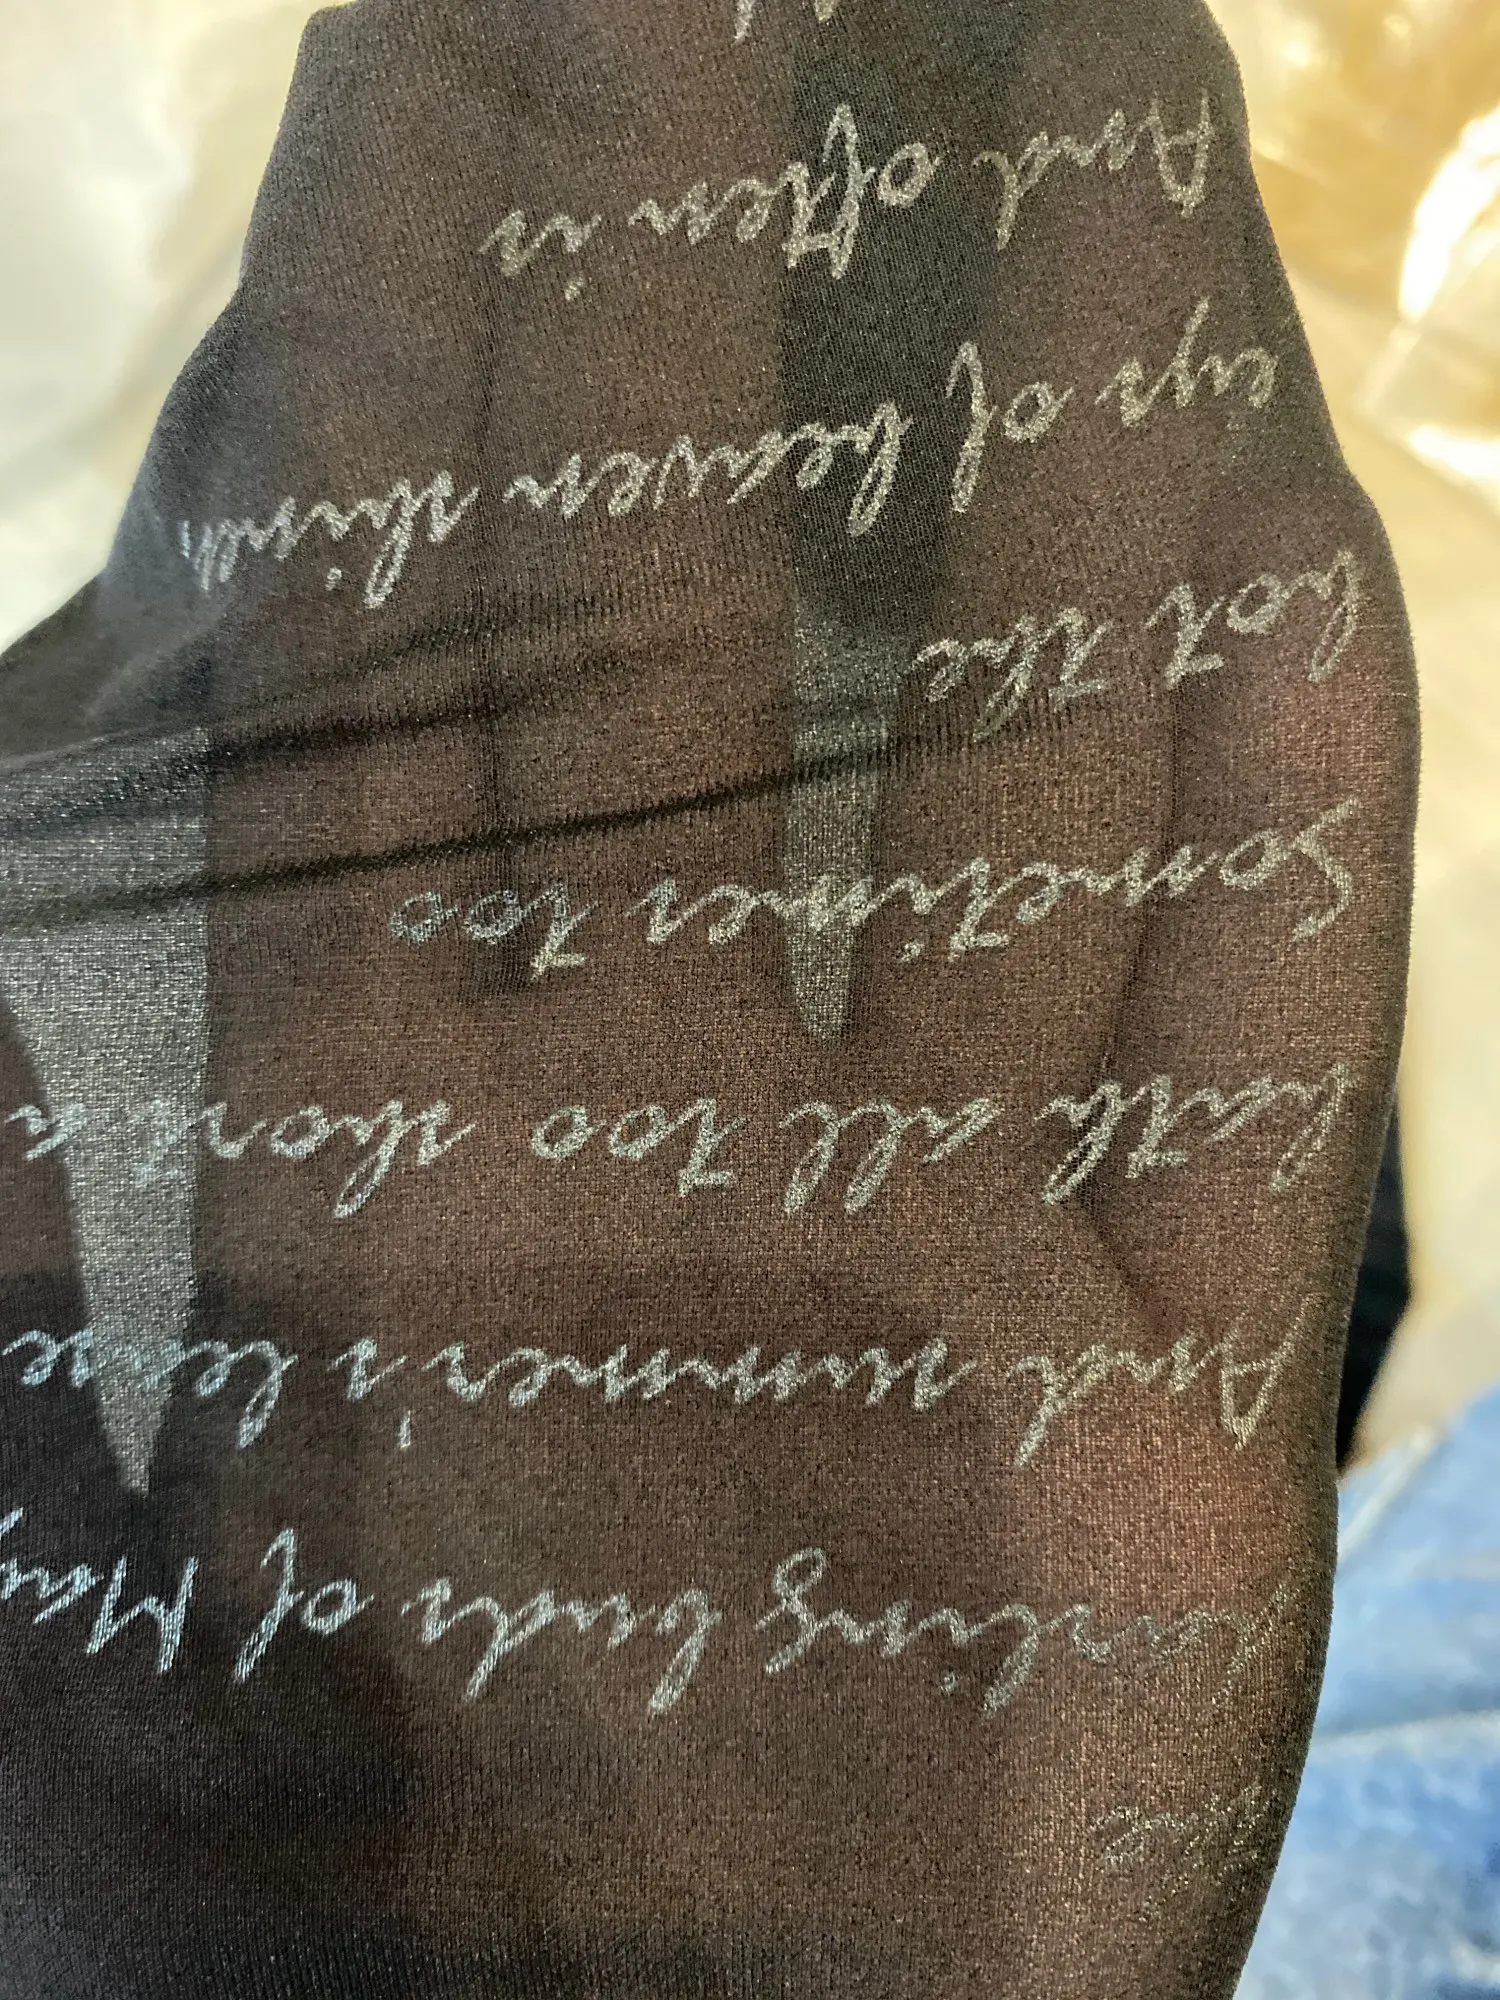 darling buds of May,
And summer's lease
hath all too short a
Sometimes too
hot the
eye of heaven shines,
And often is